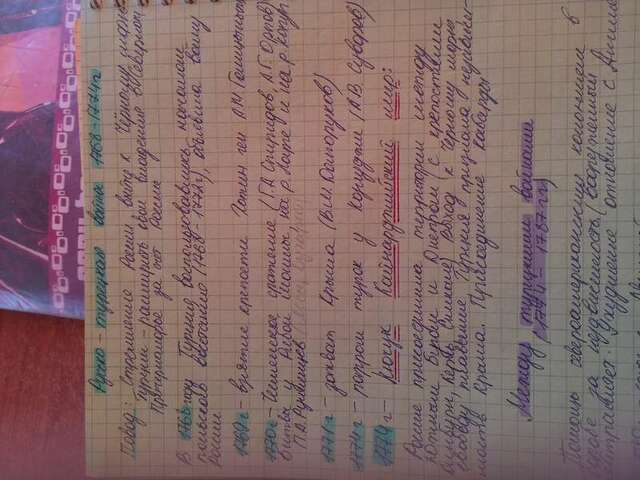 Русско - турецкая война 1768-1774г
Повод: Стремление России выйти к Чёрному морю
Турции - расширить свои владения в Северном
Причерноморье за счёт России
В 1768 году Турция воспользовавшись началом
польского восстания (1768 - 1772г), объявила войну
России
1769г - взятие крепости Хотин ген А.М. Голицыным
1770г - Чесменское сражение (Г.А. Спиридов, А.Г. Орлов)
битвы у Рябой Могилы, на р. Ларге и на р. Кагул
П.А. Румянцев
1771г - захват Крыма (В.М. Долгоруков)
1774г - разгром турок у Козлуджи (А.В. Суворов)
1774г - Кючук Кайнарджийский мир:
Россия присоединила территории между
Южным Бугом и Днепром с крепостями
Азов, Керчь, Еникале, выход к Чёрному морю
свободу плавания. Турция признала независи-
мость Крыма. Присоединение Кабарды
Между турецкими войнами
(1774 - 1787гг)
Помощь североамериканским колониям в
войне за независимость (вооружённый
нейтралитет). Ухудшение отношение с Англией